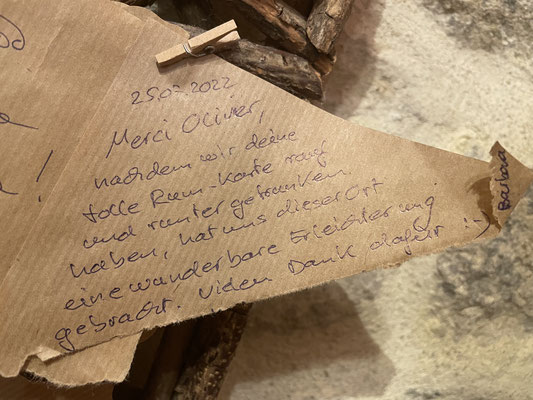 25.07.2022
Merci Olivier,
nachdem wir deine
tolle Rum-Karte rauf
und runter getrunken
haben, hat uns dieser Ort
eine wunderbare Erleichterung
gebracht. Vielen Dank dafür :-)
Barbara
!